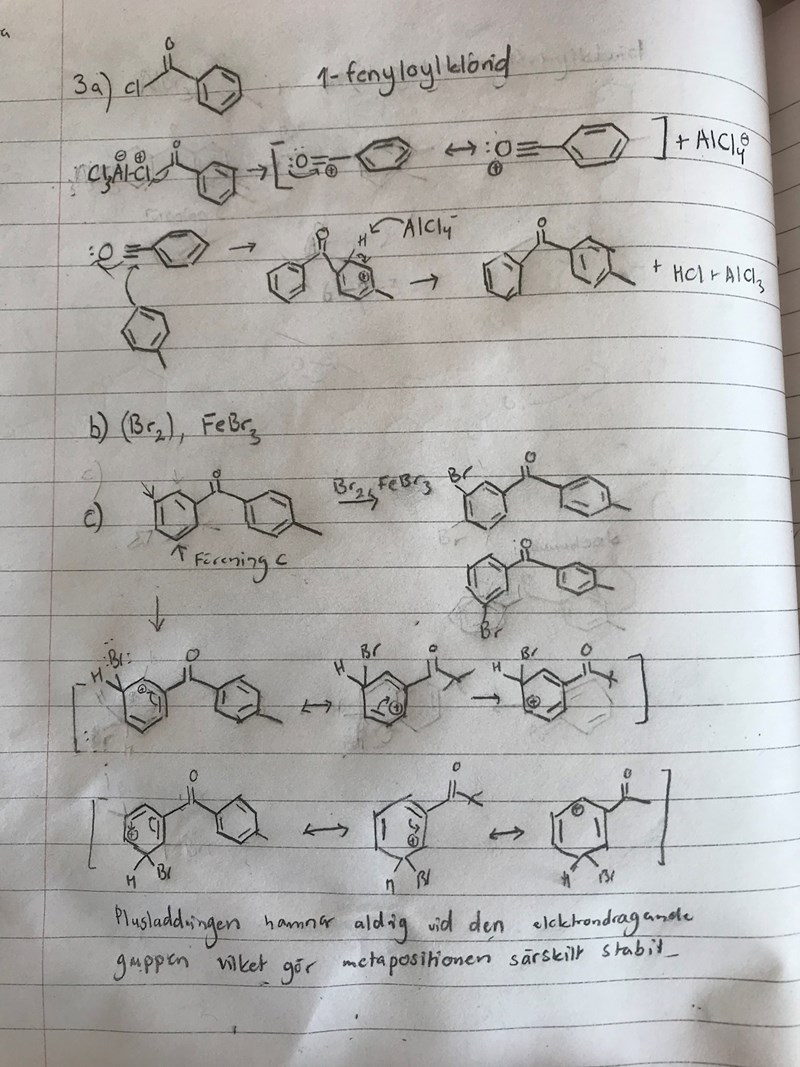 3a) Cl O 1-fenyloylklorid
Cl3Al-Cl ⊖ ⊕ O → [ :O≡ ⊕ ↔ :O≡ ⊕ ] + AlCl4⊖
:O≡ → O H AlCl4⁻ ⊕ → O + HCl + AlCl3
b) (Br2), FeBr3
c) O Br2, FeBr3 → Br O
↑ Förening C O
Br
↓
[ H :Br: ⊕ O ↔ H Br ⊕ O → H Br ⊕ O ]
[ ⊕ O H Br ↔ ⊕ O H Br ↔ ⊕ O H Br ]
Plusladdningen hamnar aldrig vid den elektrondragande
gruppen vilket gör metapositionen särskilt stabil_